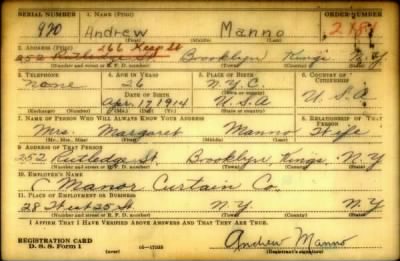 SERIAL NUMBER 1. NAME (Print) ORDER NUMBER
970 Andrew Manno 2151
(First) (Middle) (Last)
2. ADDRESS (Print) 266 Keap St
252 Rutledge St. Brooklyn Kings N.Y
(Number and street or R. F. D. number) (Town) (County) (State)
3. TELEPHONE 4. AGE IN YEARS 5. PLACE OF BIRTH 6. COUNTRY OF CITIZENSHIP
none 26 N.Y.C.
DATE OF BIRTH
Apr. 17 1914 U.S.A U.S.A
(Mo.) (Day) (Yr.)
7. NAME OF PERSON WHO WILL ALWAYS KNOW YOUR ADDRESS 8. RELATIONSHIP OF THAT PERSON
Mrs. Margaret Manno Wife
(Mr., Mrs., Miss) (First) (Middle) (Last)
9. ADDRESS OF THAT PERSON
252 Rutledge St. Brooklyn, Kings, N.Y
(Number and street or R. F. D. number) (Town) (County) (State)
10. EMPLOYER'S NAME
Manor Curtain Co.
11. PLACE OF EMPLOYMENT OR BUSINESS
28 West 25 St. N.Y N.Y
(Number and street or R. F. D. number) (Town) (County) (State)
I AFFIRM THAT I HAVE VERIFIED ABOVE ANSWERS AND THAT THEY ARE TRUE.
REGISTRATION CARD
D. S. S. Form 1 (over) 16—17105 Andrew Manno
(Registrant's signature)